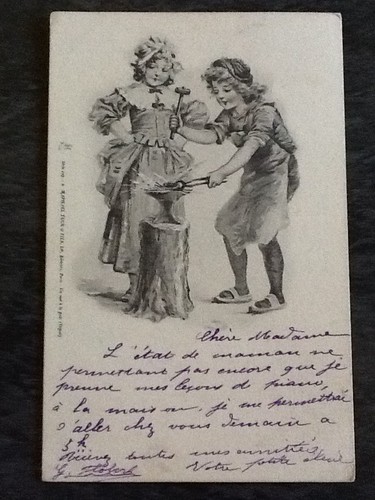 RAPHAEL TUCK & FILS
Chère Madame
L'état de maman ne
permettant pas encore que je
prenne mes leçons de piano
à la maison, je me permettrai
d'aller chez vous demain a
5h
toutes mes amitiés
Votre petite élève